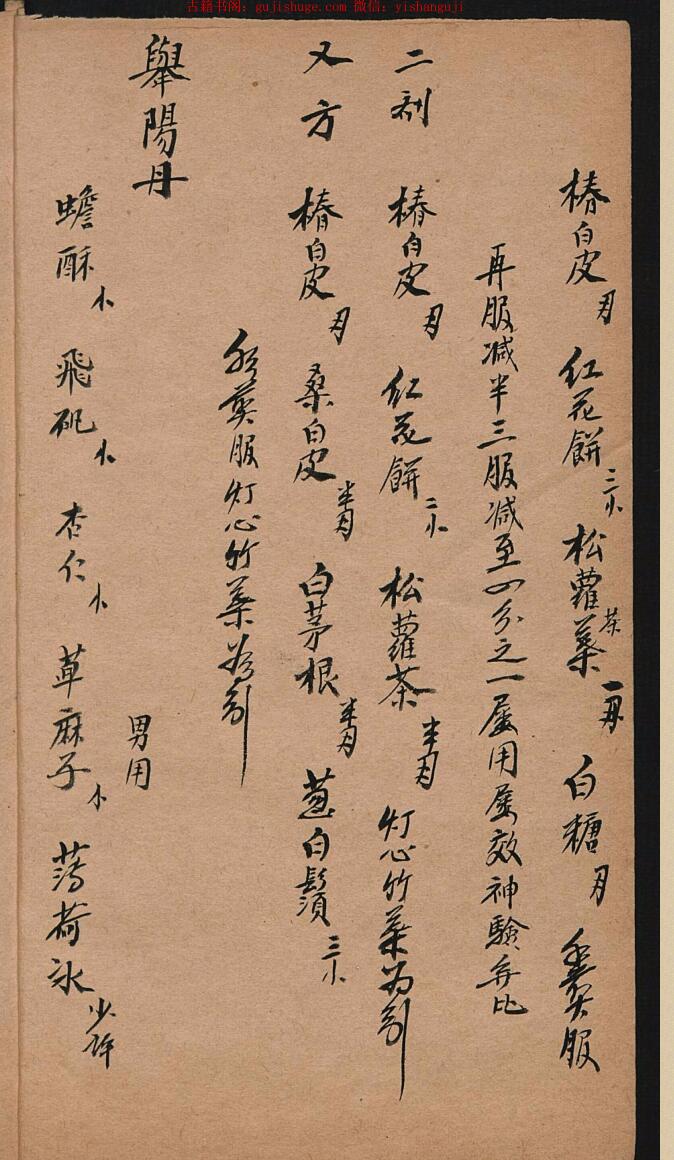 古籍书阁：gujishuge.com 微信：yishanguji
椿白皮 紅花餅 三小 松蘿葉 茶 一 白糖 服
再服減半三服減至四分之一屡用屡效神驗无比
二剂 椿白皮 紅花餅 二小 松蘿茶 半 灯心竹葉为引
又方 椿白皮 桑白皮 半 白茅根 半 葱白鬚 三小
水煎服灯心竹葉为引
舉陽丹 男用
蟾酥 飛矾 杏仁 草麻子 薄荷冰 少許